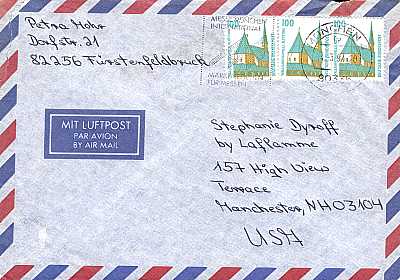 Petra Mohr
Dorfstr. 21
82256 Fürstenfeldbruck
MESSE MÜNCHEN
INTERNATIONAL
MÜNCHEN
100
100
100
MIT LUFTPOST
PAR AVION
BY AIR MAIL
Stephanie Dyroff
by Laflamme
157 High View
Terrace
Manchester, NH 03104
USA